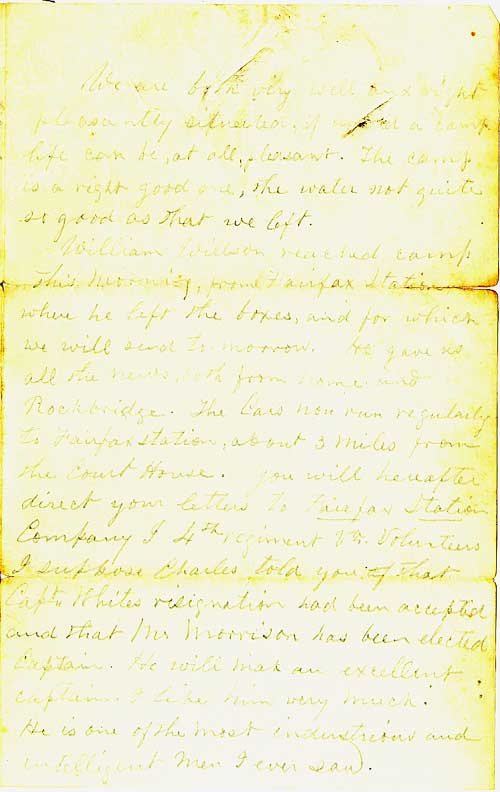 We are both very well and right
pleasantly situated, if indeed a camp
life can be, at all, pleasant. The camp
is a right good one, the water not quite
so good as that we left.
William Willson reached camp
this Morning, from Fairfax Station
where he left the boxes, and for which
we will send to morrow. He gave us
all the news, both from home and
Rockbridge. The Cars now run regularly
to Fairfax station, about 3 miles from
the Court House. you will hereafter
direct your letters to Fairfax Station
Company I 4th regiment Va. Volunteers
I suppose Charles told you of that
Capt. Whites resignation had been accepted
and that Mr Morrison has been elected
Captain. He will mak an excellent
captain. I like him very much.
He is one of the most industrious and
intelligent men I ever saw.